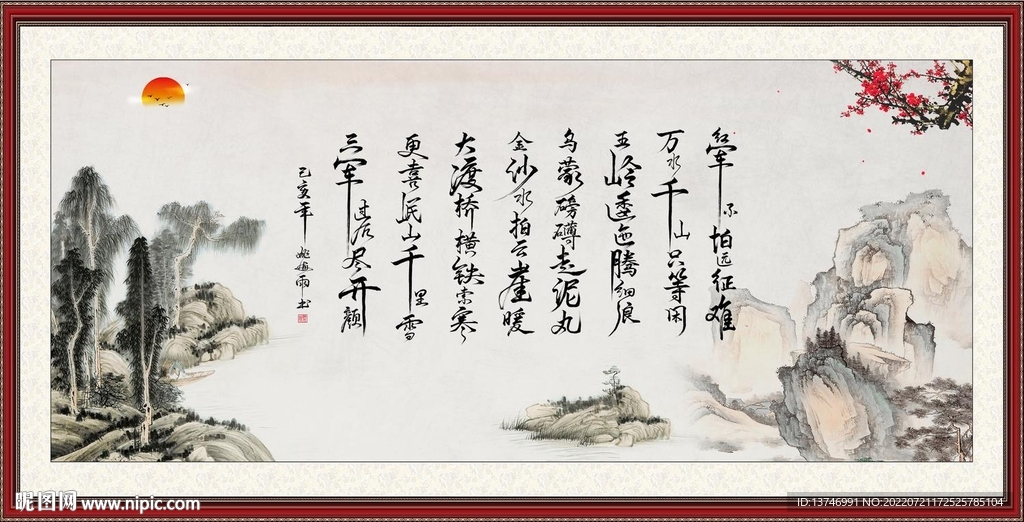 红军不怕远征难
万水千山只等闲
五岭逶迤腾细浪
乌蒙磅礴走泥丸
金沙水拍云崖暖
大渡桥横铁索寒
更喜岷山千里雪
三军过后尽开颜
己亥年 雨书
昵图网 www.nipic.com
ID:13746991 NO:20220721172525785104